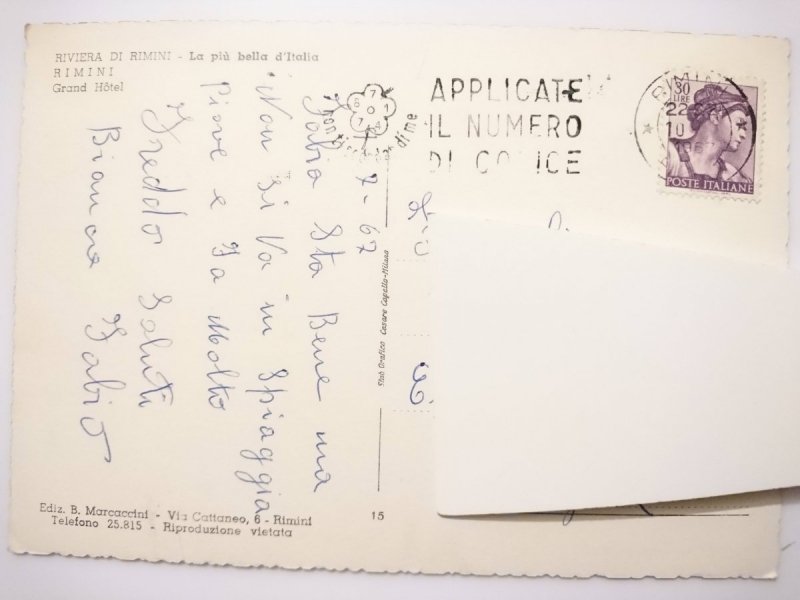 RIVIERA DI RIMINI - La più bella d'Italia
RIMINI
Grand Hôtel
7-67
Fabio Sta Bene ma
Non si Va in Spiaggia
Piove e Fa Molto
Freddo Saluti
Bianca Fabio
Ediz. B. Marcaccini - Via Cattaneo, 6 - Rimini
Telefono 25.815 - Riproduzione vietata
15
Stab Grafico Cesare Capello-Milano
di me
APPLICATE
IL NUMERO
DI CODICE
RIMINI
30
LIRE
22
10
POSTE ITALIANE